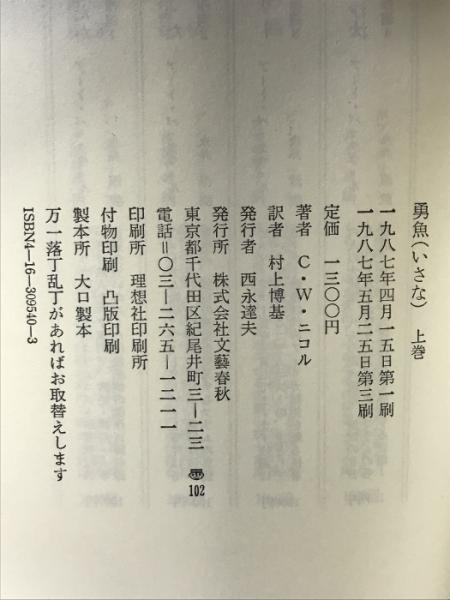 勇魚(いさな) 上巻
一九八七年四月一五日第一刷
一九八七年五月二五日第三刷
定価 一三〇〇円
著者 C・W・ニコル
訳者 村上博基
発行者 西永達夫
発行所 株式会社文藝春秋
東京都千代田区紀尾井町三―二三 〠102
電話=〇三―二六五―一二一一
印刷所 理想社印刷所
付物印刷 凸版印刷
製本所 大口製本
万一落丁乱丁があればお取替えします
ISBN4―16―309540―3